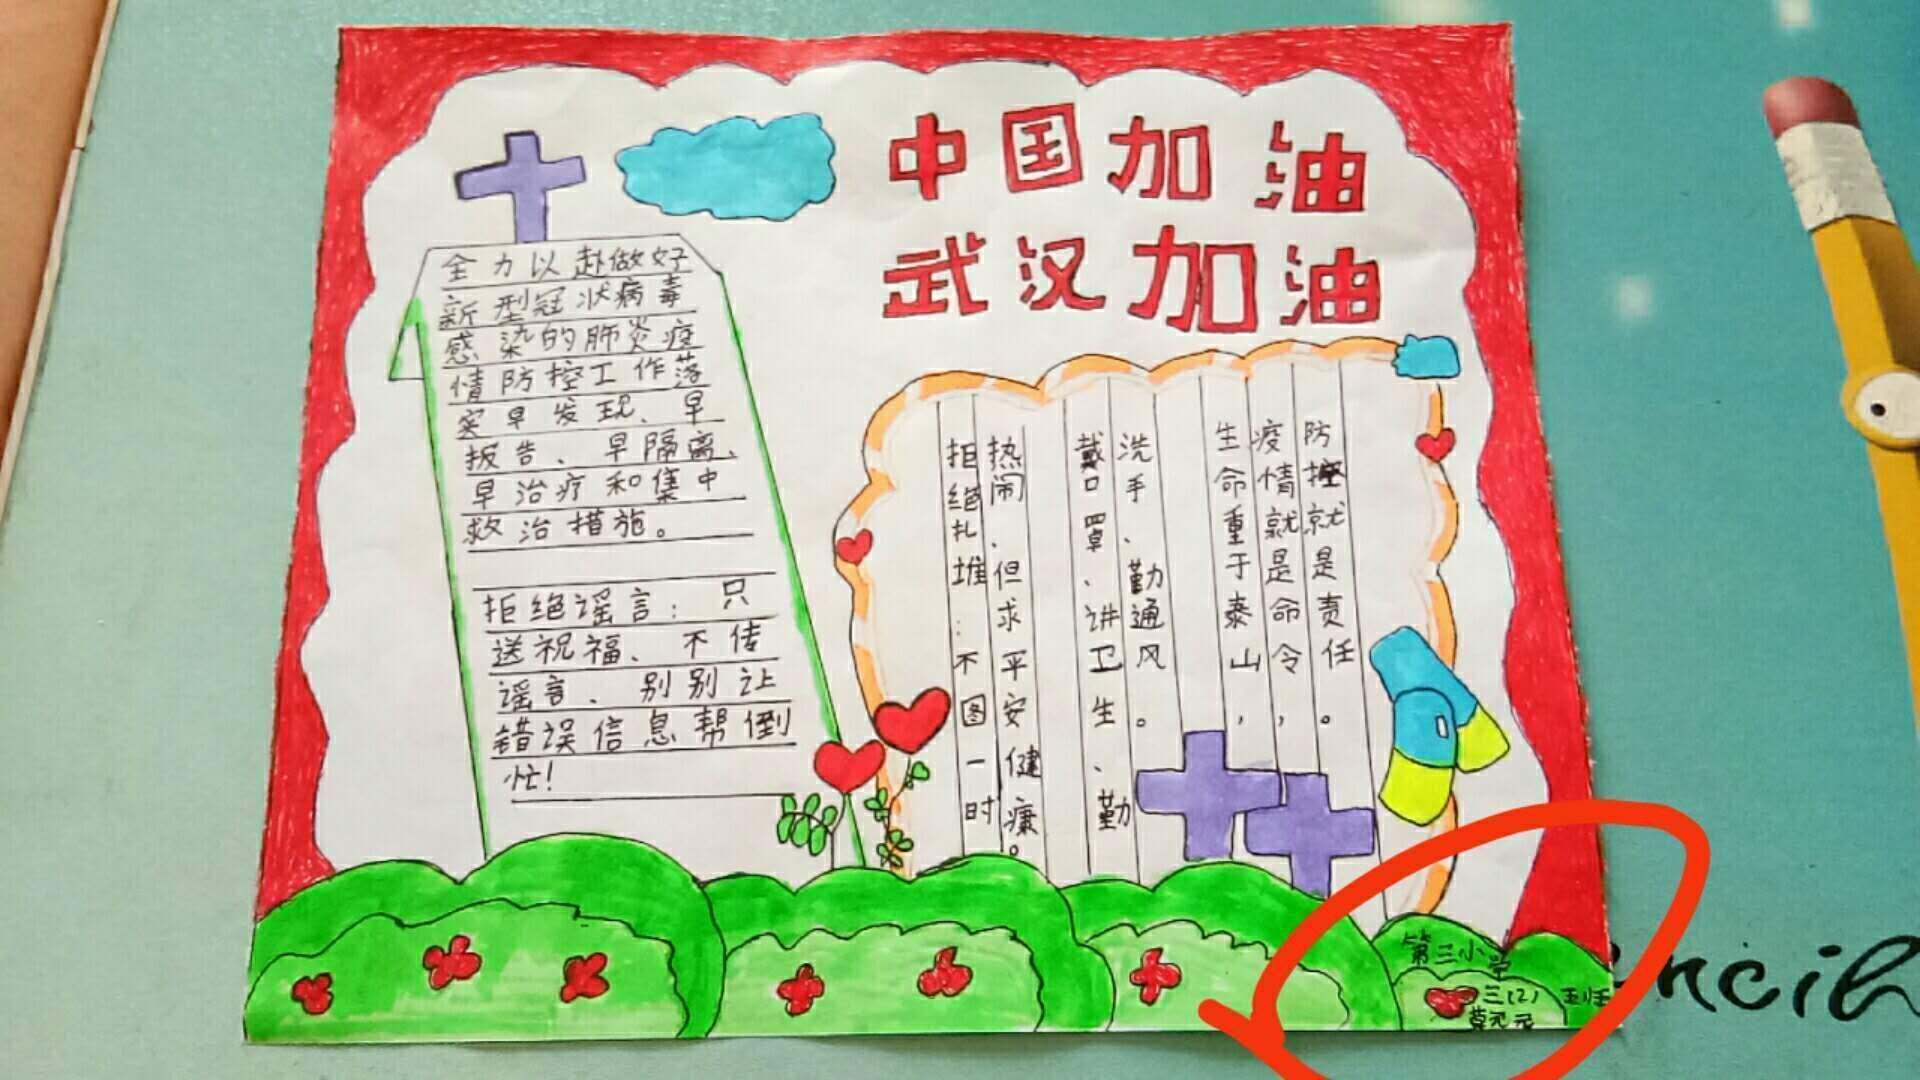 中国加油
武汉加油
全力以赴做好
新型冠状病毒
感染的肺炎疫
情防控工作落
实早发现、早
报告、早隔离、
早治疗和集中
救治措施。
拒绝谣言：只
送祝福、不传
谣言、别别让
错误信息帮倒
忙！
防控就是责任。
疫情就是命令，
生命重于泰山，
洗手、勤通风。
戴口罩、讲卫生、勤
热闹、但求平安健康。
拒绝扎堆：不图一时
第三小学
三(2)
ncil